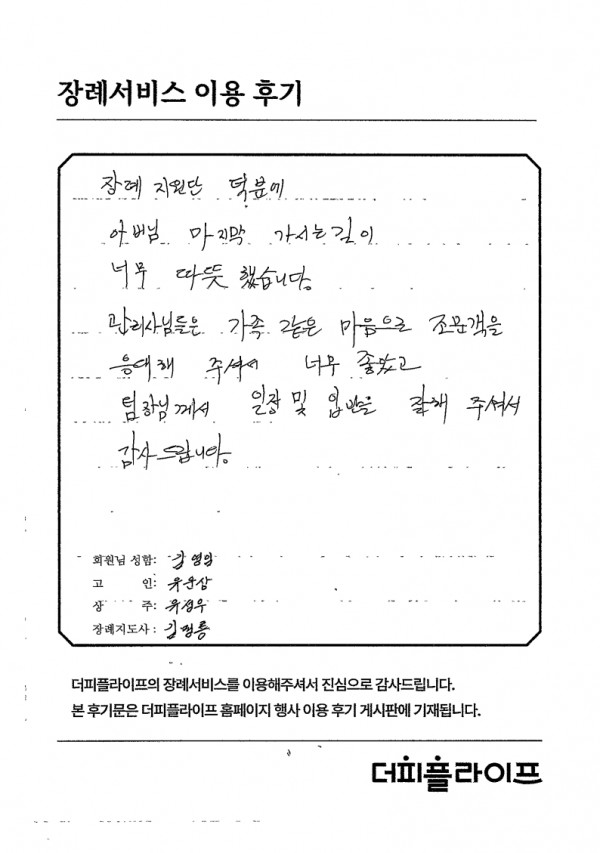 장례서비스 이용 후기
장례 지원단 덕분에
아버님 마지막 가시는길이
너무 따뜻했습니다.
관리사님들은 가족 같은 마음으로 조문객을
응대해 주셔서 너무 좋았고
팀장님께서 일장 및 입반을 잘해 주셔서
감사드립니다.
회원님 성함: 김영임
고 인: 유운상
상 주: 유정우
장례지도사: 김정룡
더피플라이프의 장례서비스를 이용해주셔서 진심으로 감사드립니다.
본 후기문은 더피플라이프 홈페이지 행사 이용 후기 게시판에 기재됩니다.
더피플라이프